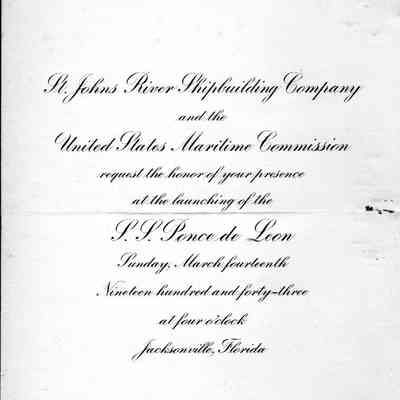 St. Johns River Shipbuilding Company
and the
United States Maritime Commission
request the honor of your presence
at the launching of the
S. S. Ponce de Leon
Sunday, March fourteenth
Nineteen hundred and forty-three
at four o'clock
Jacksonville, Florida